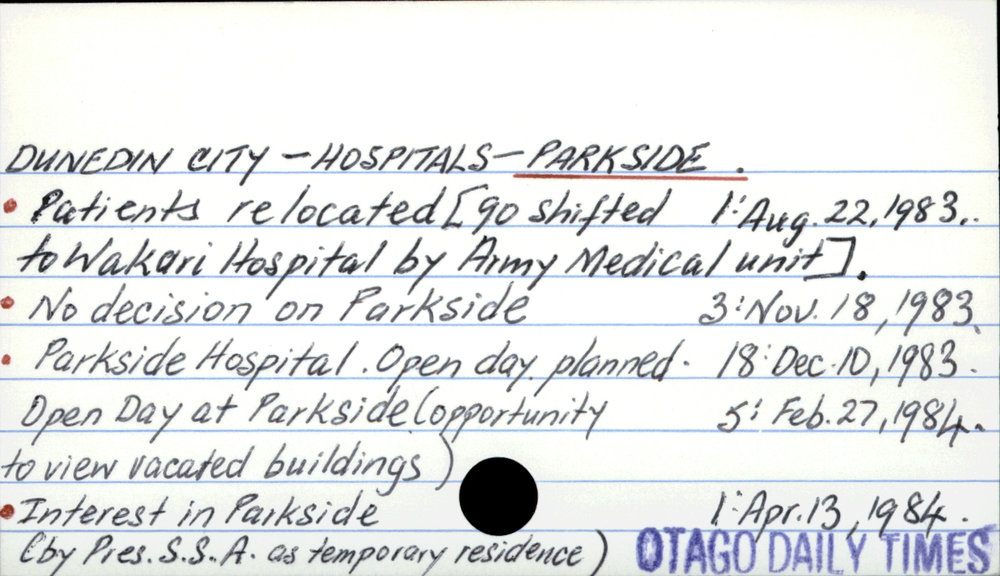 DUNEDIN CITY - HOSPITALS - PARKSIDE.
• Patients relocated [90 shifted 1: Aug. 22, 1983..
to Wakari Hospital by Army Medical unit].
• No decision on Parkside 3: Nov. 18, 1983.
• Parkside Hospital. Open day planned. 18: Dec. 10, 1983.
Open Day at Parkside (opportunity 5: Feb. 27, 1984.
to view vacated buildings)
• Interest in Parkside 1: Apr. 13, 1984.
(by Pres. S.S.A. as temporary residence) OTAGO DAILY TIMES